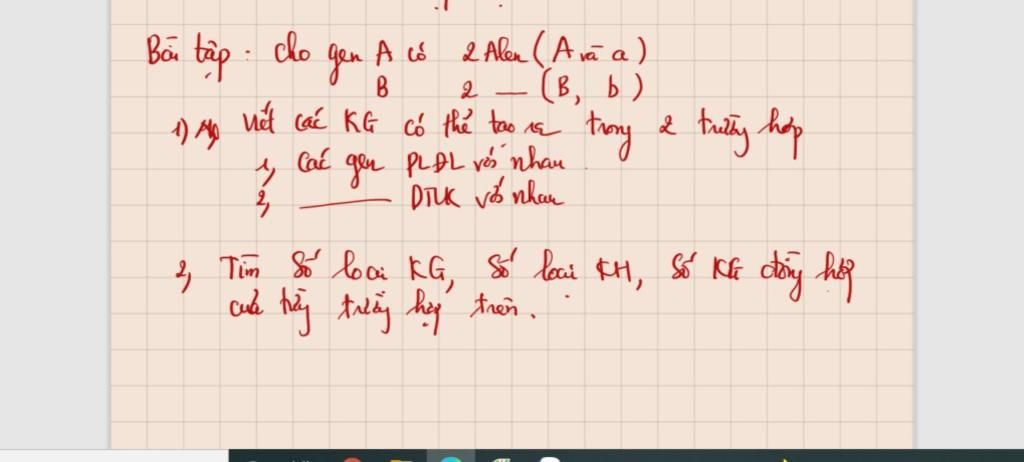 Bài tập : Cho gen A có 2 Alen ( A và a )
B 2 — ( B, b )
1) Viết các KG có thể tạo ra trong 2 trường hợp
1, Các gen PLĐL với nhau .
2, ——— DTLK với nhau
2, Tìm số loại KG, số loại KH, số KG đồng hợp
của từng trường hợp trên .